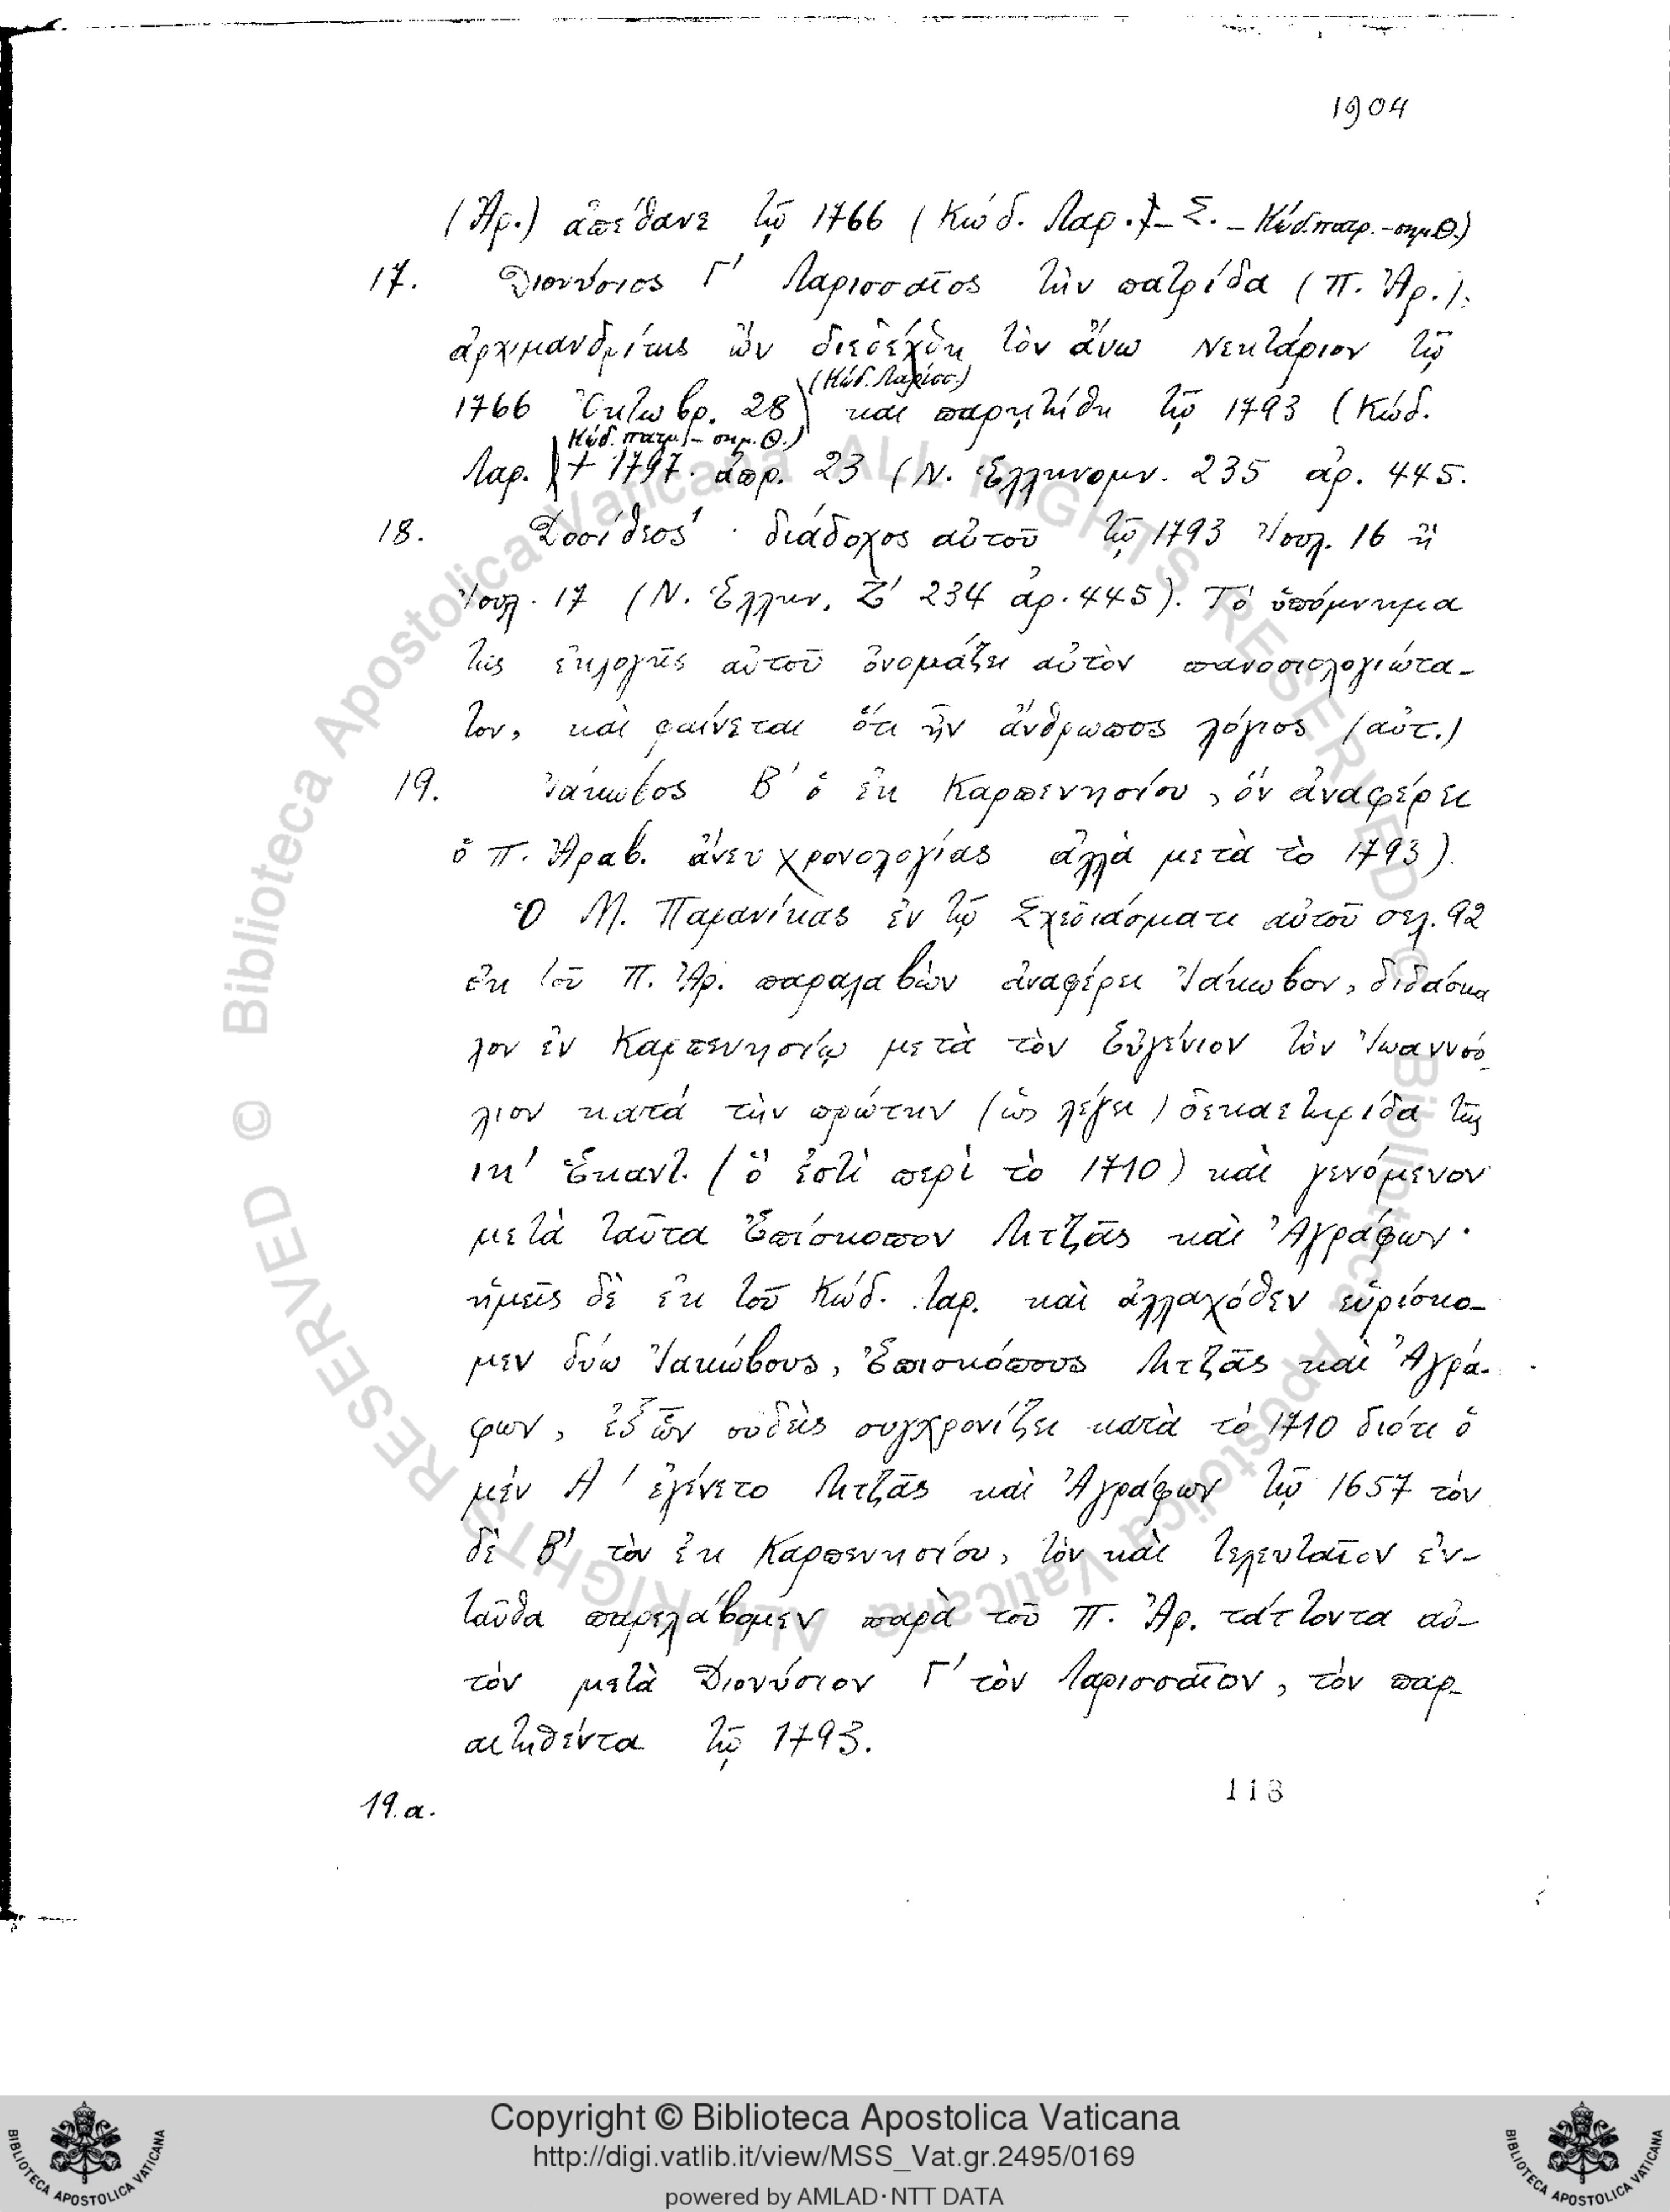 1904
(Ἀρ.) ἀπέθανε τῷ 1766 (Κώδ. Λαρ. – Σ. – Κώδ. πατρ. – σημ. Θ.)
17. Διονύσιος Γ' Λαρισσαῖος τὴν πατρίδα (Π. Ἀρ.).
ἀρχιμανδρίτης ὢν διεδέχθη τὸν ἄνω Νεκτάριον τῷ
(Κώδ. Λαρίσσ.)
1766 Ὀκτωβρ. 28) καὶ παρῃτήθη τῷ 1793 (Κώδ.
Κώδ. πατρ. – σημ. Θ.)
Λαρ. † 1797. ἀπρ. 23 (Ν. Ἑλληνομν. 235 ἀρ. 445.
18. Δοσίθεος · διάδοχος αὐτοῦ τῷ 1793 Ἰουλ. 16 ἢ
Ἰουλ. 17 (Ν. Ἑλλην. Ζ' 234 ἀρ. 445). Τὸ ὑπόμνημα
τῆς ἐκλογῆς αὐτοῦ ὀνομάζει αὐτὸν πανοσιολογιώτα-
τον, καὶ φαίνεται ὅτι ἦν ἄνθρωπος λόγιος (αὐτ.)
19. Ἰάκωβος Β' ὁ ἐκ Καρπενησίου, ὃν ἀναφέρει
ὁ Π. Ἀραβ. ἄνευ χρονολογίας ἀλλὰ μετὰ τὸ 1793).
Ὁ Μ. Παρανίκας ἐν τῷ Σχεδιάσματι αὐτοῦ σελ. 92
ἐκ τοῦ Π. Ἀρ. παραλαβὼν ἀναφέρει Ἰάκωβον, διδάσκα
λον ἐν Καρπενησίῳ μετὰ τὸν Εὐγένιον τὸν Ἰωαννού-
λιον κατὰ τὴν πρώτην (ὡς λέγει) δεκαετηρίδα τῆς
ιη' Ἑκαντ. (ὅ ἐστὶ περὶ τὸ 1710) καὶ γενόμενον
μετὰ ταῦτα Ἐπίσκοπον Λιτζᾶς καὶ Ἀγράφων·
ἡμεῖς δὲ ἐκ τοῦ Κώδ. Λαρ. καὶ ἀλλαχόθεν εὑρίσκο-
μεν δύω Ἰακώβους, Ἐπισκόπους Λιτζᾶς καὶ Ἀγρά-
φων, ἐξ ὧν οὐδεὶς συγχρονίζει κατὰ τὸ 1710 διότι ὁ
μὲν Α' ἐγίνετο Λιτζᾶς καὶ Ἀγράφων τῷ 1657 τὸν
δὲ Β' τὸν ἐκ Καρπενησίου, τὸν καὶ τελευταῖον ἐν-
ταῦθα παρελάβομεν παρὰ τοῦ Π. Ἀρ. τάττοντα αὐ-
τὸν μετὰ Διονύσιον Γ' τὸν Λαρισσαῖον, τὸν παρ-
αιτηθέντα τῷ 1793.
118
19.α.
© Biblioteca Apostolica Vaticana ALL RIGHTS RESERVED
© Biblioteca Apostolica Vaticana ALL RIGHTS RESERVED
Copyright © Biblioteca Apostolica Vaticana
http://digi.vatlib.it/view/MSS_Vat.gr.2495/0169
powered by AMLAD·NTT DATA
BIBLIOTECA APOSTOLICA VATICANA
BIBLIOTECA APOSTOLICA VATICANA